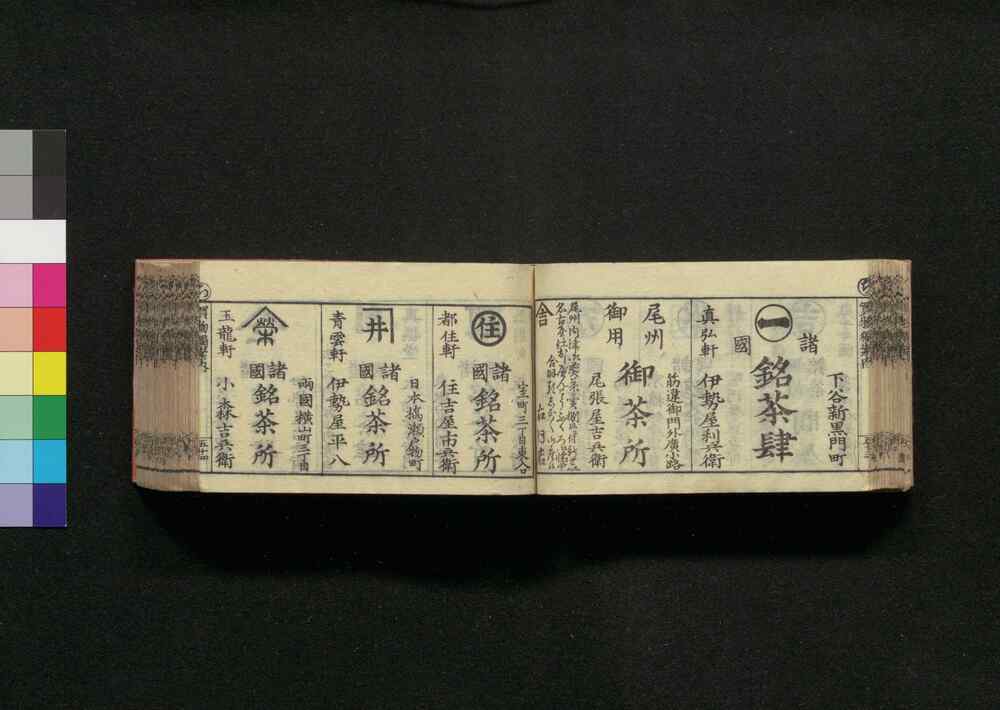 下谷新黒門町
一
諸國
銘茶肆
真弘軒 伊勢屋利兵衛
筋違御門外廣小路
尾州御用
御茶所
尾張屋吉兵衛
室町三丁目東入口
住
諸國
銘茶所
都住軒 住吉屋市兵衛
日本橋瀬戸物町
井
諸國
銘茶所
青雲軒 伊勢屋平八
両國横山町三丁目
榮
諸國
銘茶所
玉龍軒 小森吉兵衛
五十四